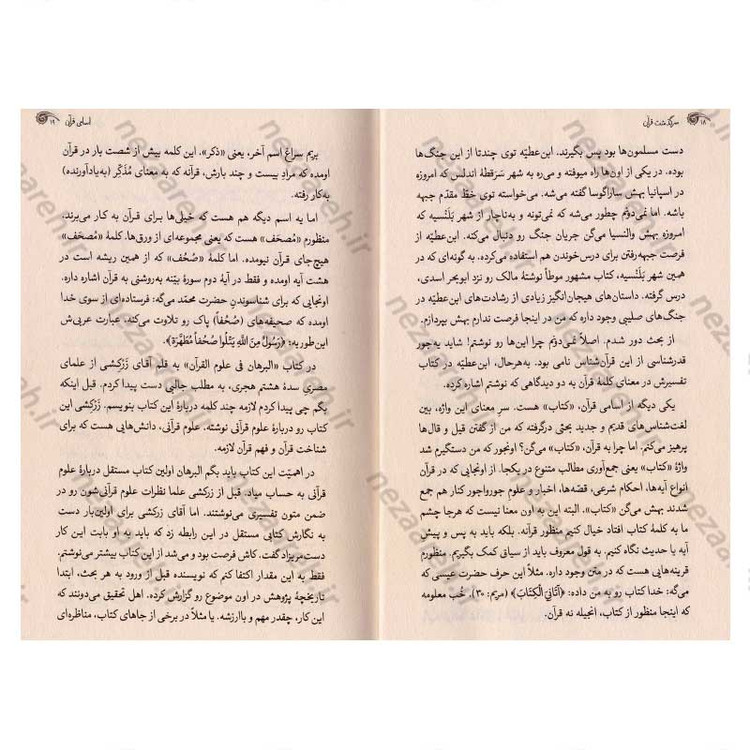 ۱۸ سرگذشت قرآن
دست مسلمون‌ها بود پس بگیرند. ابن‌عطیّه توی چندتا از این جنگ‌ها
بوده. در یکی از اون‌ها راه میوفته و می‌ره به شهر سَرَقسَطۀ اندلس که امروزه
در اسپانیا بهش ساراگوسا گفته می‌شه. می‌خواسته توی خطّ مقدّم جبهه
باشه. اما نمی‌دونم چطور می‌شه که نمی‌تونه و به‌ناچار از شهر بَلَنْسیه که
امروزه بهش والنسیا می‌گن جریان جنگ رو دنبال می‌کنه. ابن‌عطیّه از
فرصت جبهه‌رفتن برای درس خوندن هم استفاده می‌کرده. به گونه‌ای که در
همین شهر بَلَنْسیه، کتاب مشهور موطّأ نوشتۀ مالک رو نزد ابوبحر اسدی،
درس گرفته. داستان‌های هیجان‌انگیز زیادی از رشادت‌های ابن‌عطیّه در
جنگ‌های صلیبی وجود داره که من در اینجا فرصت ندارم بهش بپردازم.
از بحث دور شدم. اصلاً نمی‌دونم چرا این‌ها رو نوشتم! شاید یه‌جور
قدرشناسی از این قرآن‌شناس نامی بود. به‌هرحال، ابن‌عطیّه در کتاب
تفسیرش در معنای کلمۀ قرآن به دو دیدگاهی که نوشتم اشاره کرده.
یکی دیگه از اسامی قرآن، «کتاب» هست. سرِ معنای این واژه، بین
لغت‌شناس‌های قدیم و جدید بحثی درگرفته که من از گفتن قیل و قال‌ها
پرهیز می‌کنم. اما چرا به قرآن، «کتاب» می‌گن؟ اونجور که من دستگیرم شد
واژۀ «کتاب» یعنی جمع‌آوری مطالب متنوع در یکجا. از اونجایی که در قرآن
انواع آیه‌ها، احکام شرعی، قصّه‌ها، اخبار و علوم جورواجور کنار هم جمع
شدند بهش می‌گن «کتاب». البته این به اون معنا نیست که هرجا چشم
ما به کلمۀ کتاب افتاد خیال کنیم منظور قرآنه. بلکه باید به پس و پیش
آیه یا حدیث نگاه کنیم. به قول معروف باید از سیاق کمک بگیریم. منظورم
قرینه‌هایی هست که در متن وجود داره. مثلاً این حرف حضرت عیسی که
می‌گه: خدا کتاب رو به من داده: ﴿آتَانِيَ الْكِتَابَ﴾ (مریم: ۳۰). خُب معلومه
که اینجا منظور از کتاب، انجیله نه قرآن.
اسامی قرآن ۱۹
بریم سراغ اسم آخر، یعنی «ذکر». این کلمه بیش از شصت بار در قرآن
اومده که مراد بیست و چند بارش، قرآنه که به معنای مُذَکِّر (به‌یادآورنده)
به‌کار رفته.
اما یه اسم دیگه هم هست که خیلی‌ها برای قرآن به کار می‌برند.
منظورم «مُصحَف» هست که یعنی مجموعه‌ای از ورق‌ها. کلمۀ «مُصحَف»
هیچ‌جای قرآن نیومده. اما کلمۀ «صُحُف» که از همین ریشه است در
هشت آیه اومده و فقط در آیۀ دوم سورۀ بیّنه به‌روشنی به قرآن اشاره داره.
اونجایی که برای شناسوندن حضرت محمّد می‌گه: فرستاده‌ای از سوی خدا
اومده که صحیفه‌های (صُحُفاً) پاک رو تلاوت می‌کنه. عبارت عربی‌ش
این‌طوریه: ﴿رَسُولٌ مِنَ اللَّهِ يَتْلُوا صُحُفاً مُطَهَّرَةً﴾.
در کتاب «البرهان فی علوم القرآن» به قلم آقای زَرْکَشی از علمای
مصریِ سدۀ هشتم هجری، به مطلب جالبی دست پیدا کردم. قبل اینکه
بگم چی پیدا کردم لازمه چند کلمه دربارۀ این کتاب بنویسم. زَرْکَشی این
کتاب رو دربارۀ علوم قرآنی نوشته. علوم قرآنی، دانش‌هایی هست که برای
شناخت قرآن و فهم قرآن لازمه.
در اهمیّت این کتاب باید بگم البرهان اولین کتاب مستقل دربارۀ علوم
قرآنی به حساب میاد. قبل از زرکشی علما نظرات علوم قرآنی‌شون رو در
ضمن متون تفسیری می‌نوشتند. اما آقای زرکشی برای اولین‌بار دست
به نگارش کتابی مستقل در این رابطه زد که باید به او بابت این کار
دست‌مریزاد گفت. کاش فرصت بود و می‌شد از این کتاب بیشتر می‌نوشتم.
فقط به این مقدار اکتفا کنم که نویسنده قبل از ورود به هر بحث، ابتدا
تاریخچۀ پژوهش در اون موضوع رو گزارش کرده. اهل تحقیق می‌دونند که
این کار، چقدر مهم و باارزشه. یا مثلاً در برخی از جاهای کتاب، مناظره‌ای
nezaareh.ir